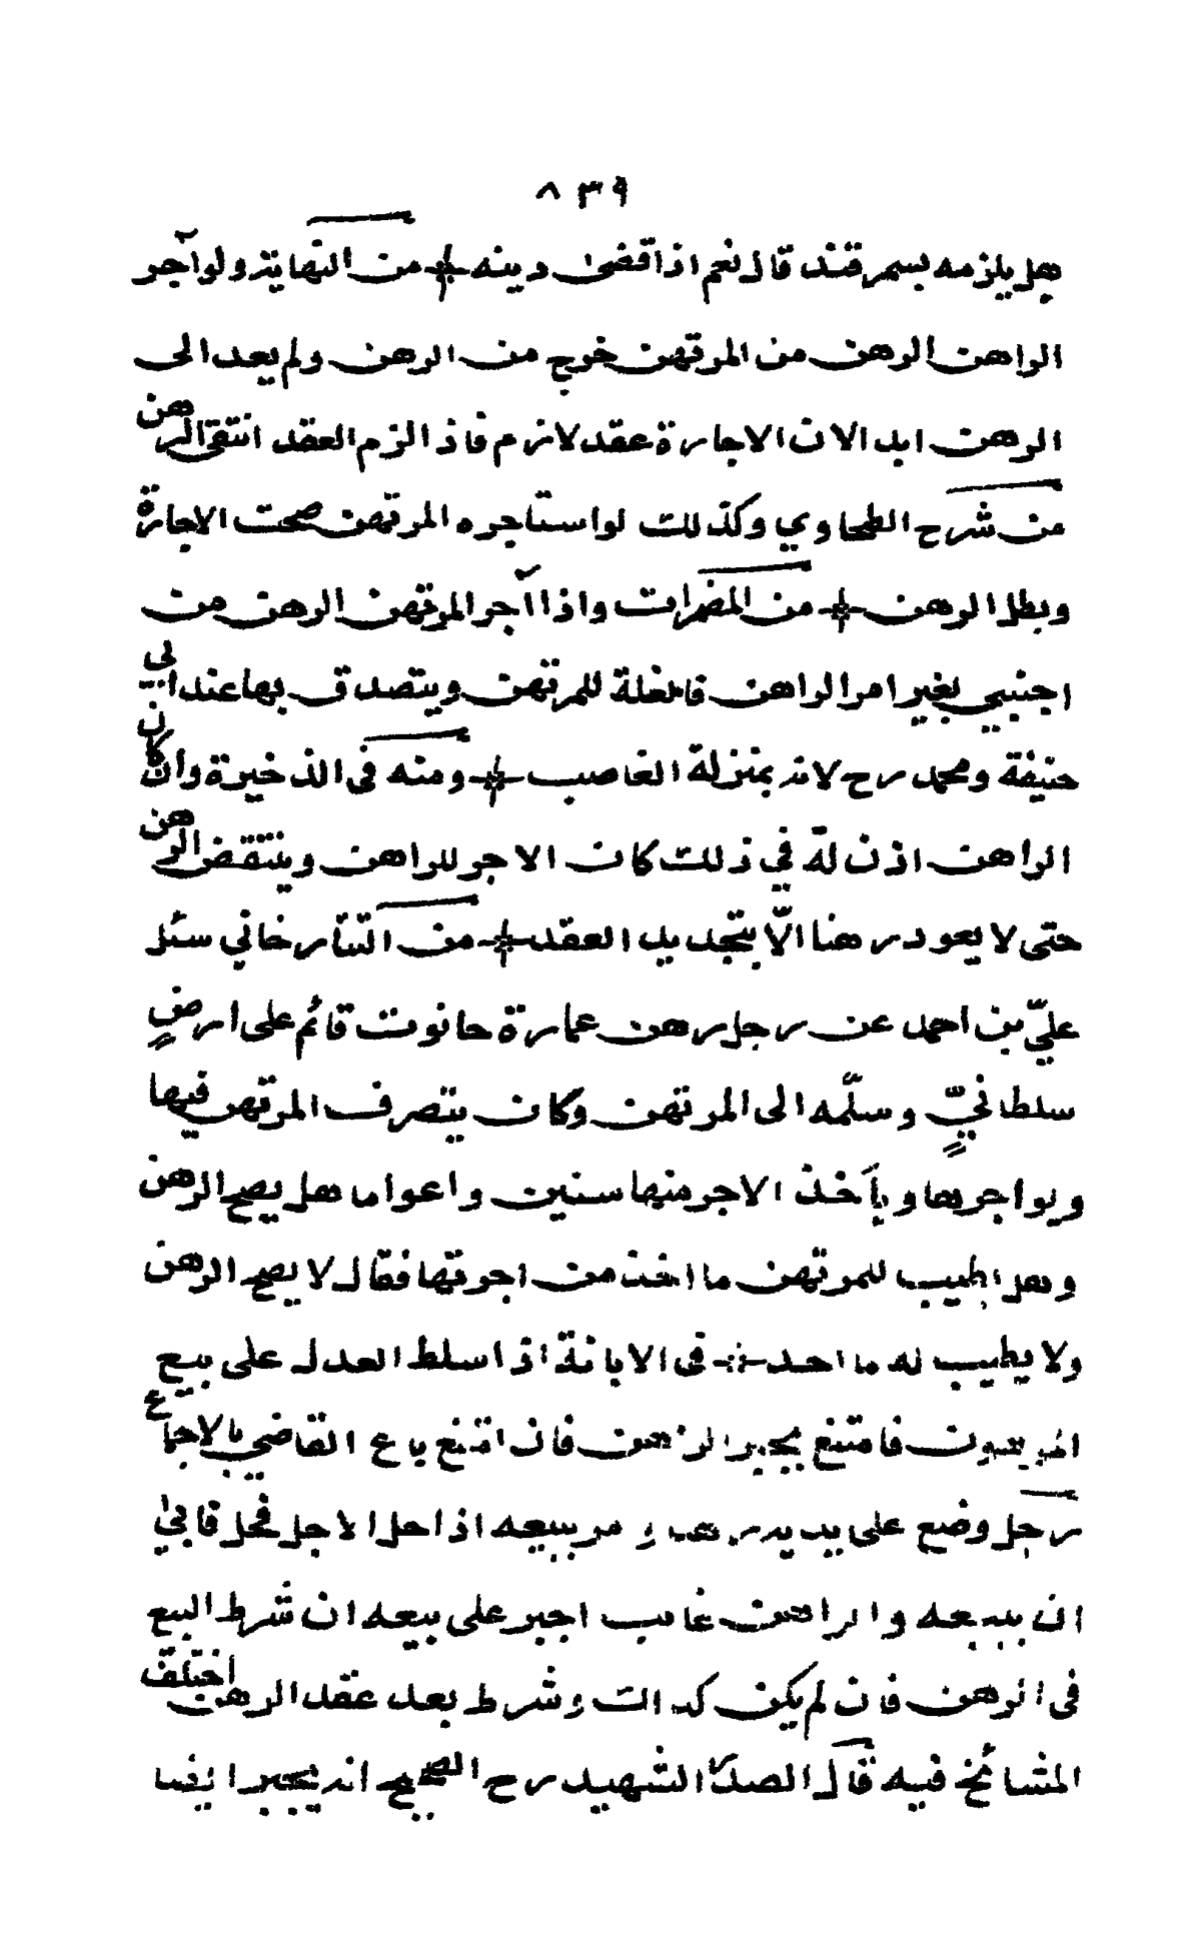 ٨٣٩
هل يلزمه بسمرقند قال نعم اذا قضى دينه من النهاية ولو آجر
الراهن الرهن من المرتهن خرج من الرهن ولم يعد الى
الرهن ابدا لان الاجارة عقد لازم فاذا لزم العقد انتقى الرهن
من شرح الطحاوي وكذلك لو استاجره المرتهن صحت الاجارة
وبطل الرهن من المضمرات واذا آجر المرتهن الرهن من
اجنبي بغير امر الراهن فالغلة للمرتهن ويتصدق بها عند ابي
حنيفة ومحمد رح لانه بمنزلة الغاصب ومنه فى الذخيرة وان كان
الراهن اذن له في ذلك كان الاجر للراهن وينتقض الرهن
حتى لا يعود رهنا الّا بتجديد العقد من التتارخاني سئل
عليّ بن احمد عن رجل رهن عمارة حانوت قائم على ارضٍ
سلطانيٍّ وسلّمه الى المرتهن وكان يتصرف المرتهن فيها
ويواجرها ويأخذ الاجر منها سنين واعواما هل يصح الرهن
وهل يطيب للمرتهن ما اخذ من اجرتها فقال لا يصح الرهن
ولا يطيب له ما اخذ فى الابانة اذا سلط العدل على بيع
المرهون فامتنع يجبر الراهن فان امتنع باع القاضي بالاجماع
رجل وضع على يديه رهنا و امر ببيعه اذا حل الاجل فحل فابى
ان يبيعه والراهن غائب اجبر على بيعه ان شرط البيع
فى الرهن فان لم يكن كذلك وشرط بعد عقد الرهن اختلف
المشائخ فيه قال الصدر الشهيد رح الصحيح انه يجبر ايضا